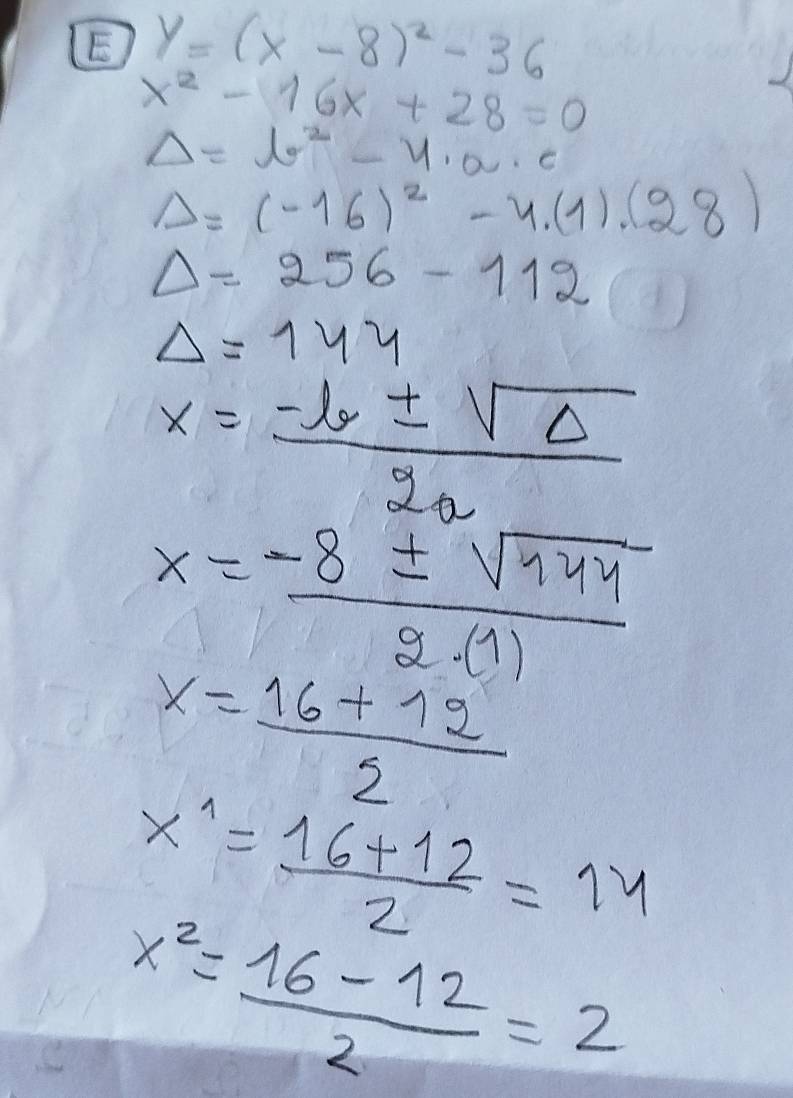 E y = (x - 8)² - 36
x² - 16x + 28 = 0
Δ = b² - 4·a·c
Δ = (-16)² - 4·(1)·(28)
Δ = 256 - 112
Δ = 144
x = -b ± √Δ
2a
x = -8 ± √144
2·(1)
x = 16 + 12
2
x¹ = 16 + 12 = 14
2
x² = 16 - 12 = 2
2